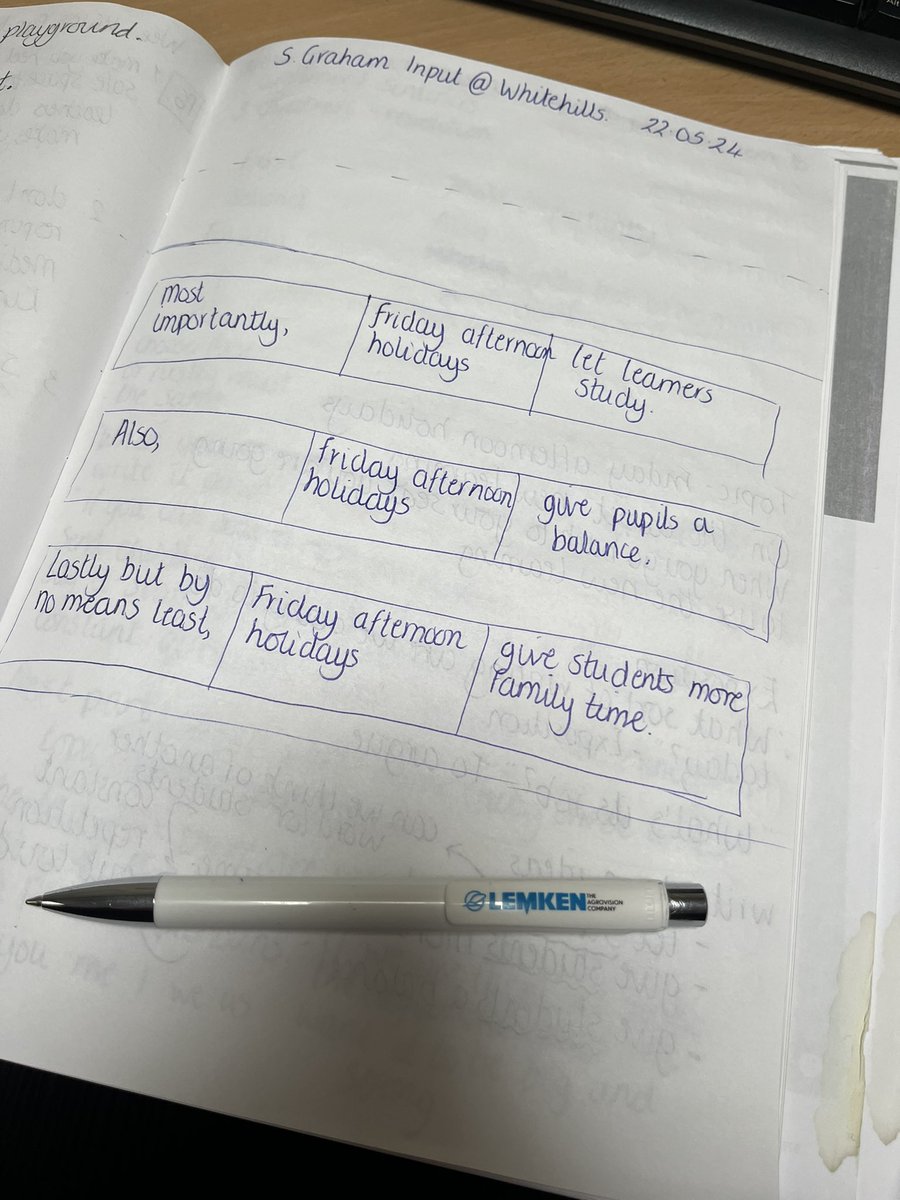 playground.
t.
S Graham Input @ Whitehills. 22.05.24
Most
importantly,
Friday afternoon
holidays
let learners
study.
Also,
Friday afternoon
holidays
give pupils a
balance.
Lastly but by
no means least,
Friday afternoon
holidays
give students more
family time.
LEMKEN THE
AGROVISION
COMPANY